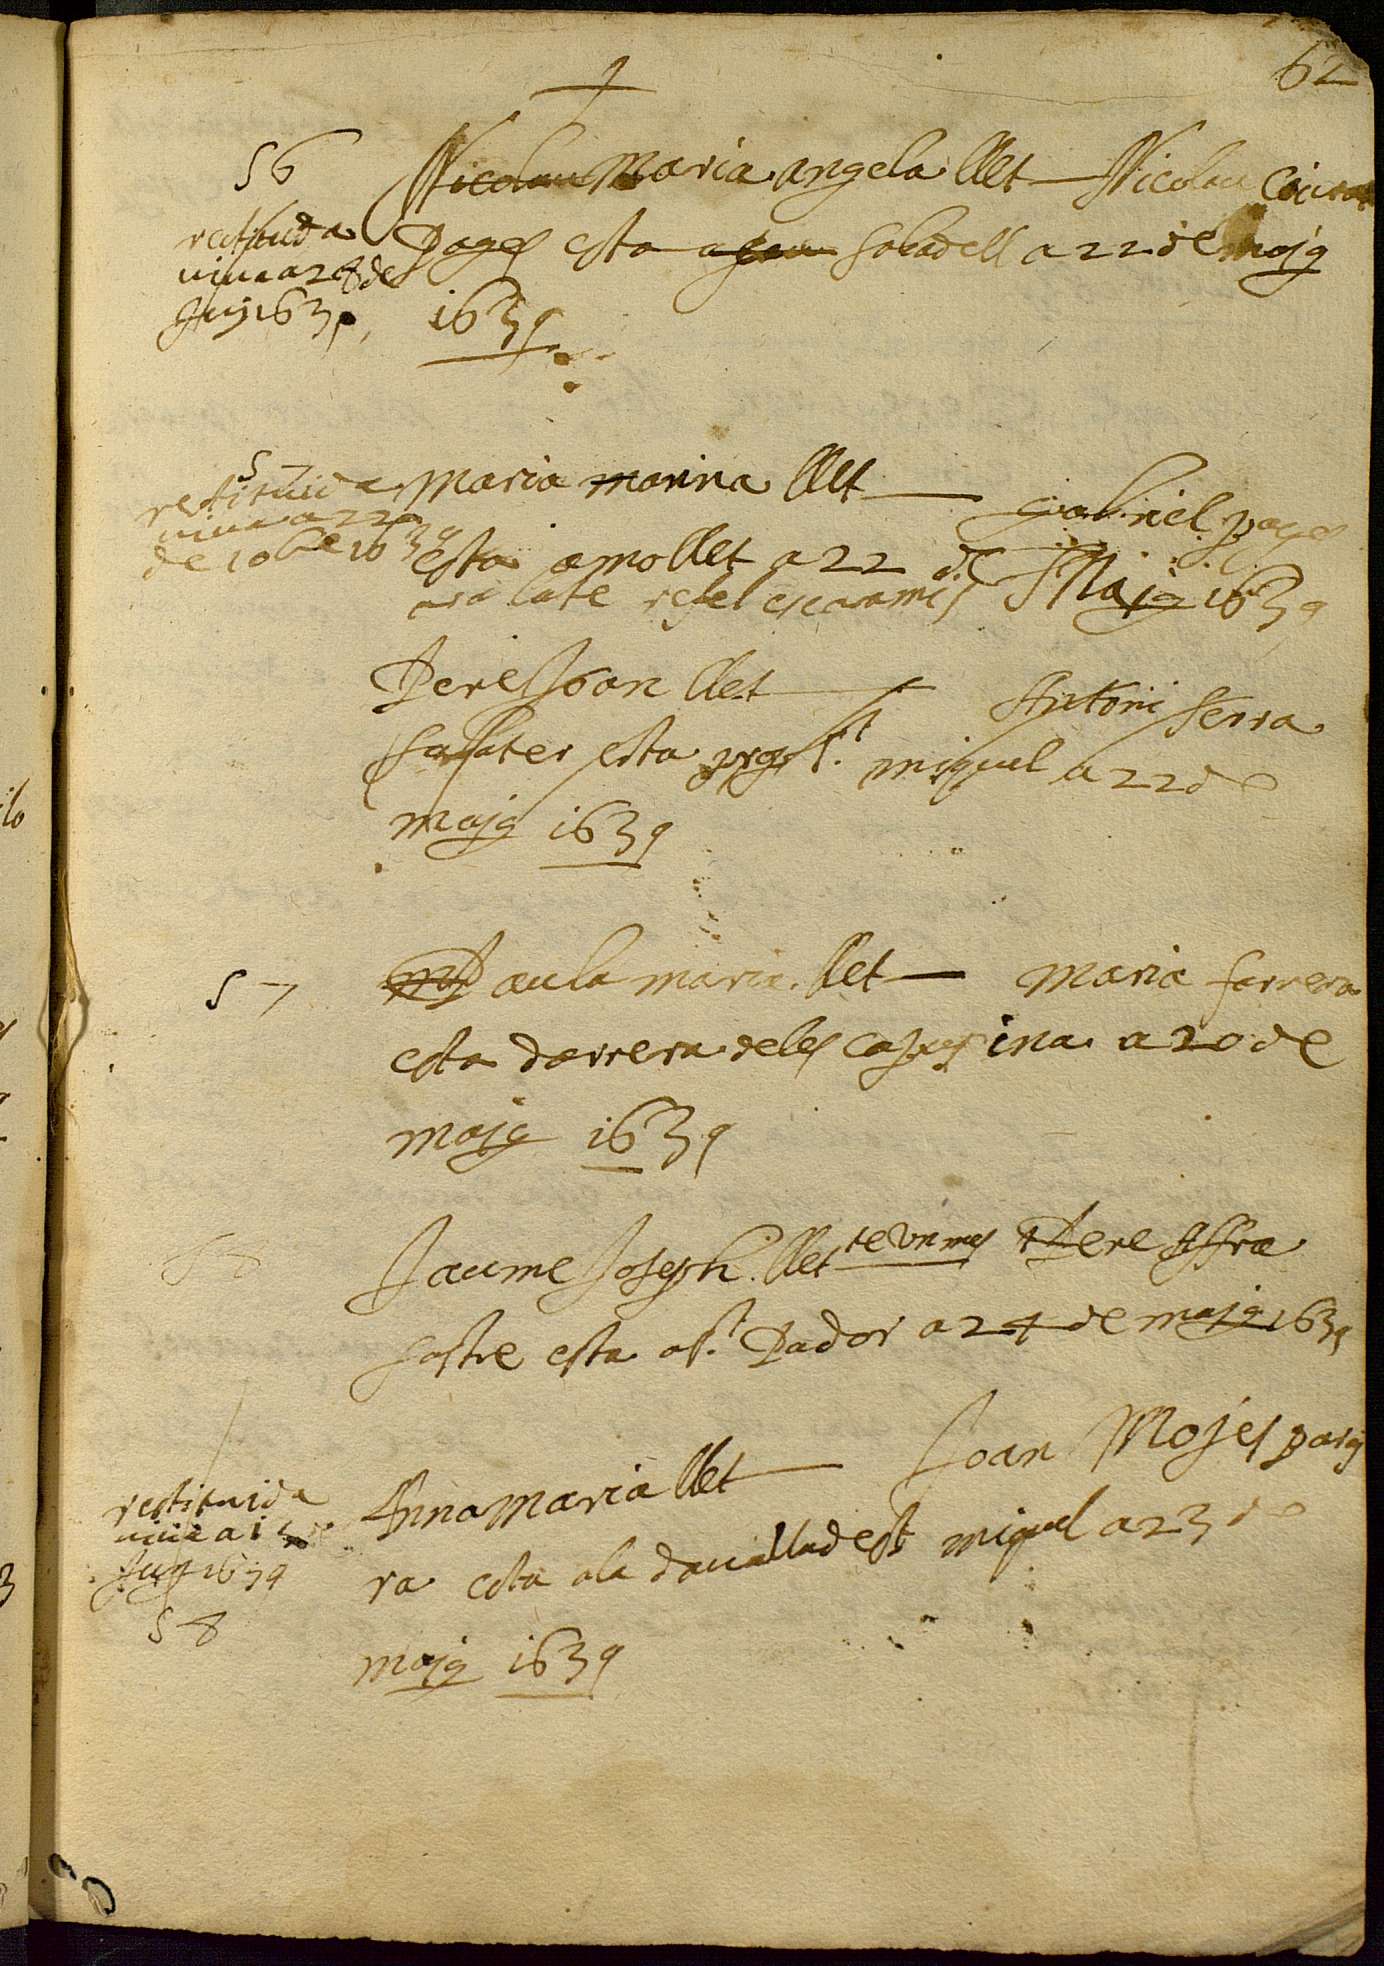 62
56 Nicolau Maria angela llet — Nicolau
restituida
viva a 28 de
Juny 1639
Pages esta a sabadell a 22 de maig
1639
57
restituida
viva a 22
de 10bre 1639
Maria marina llet — Gabriel pages
esta a mollet a 22 de Maig 1639
ara la te
Pere Joan llet — Antoni serra
sabater esta prop St. miquel a 22 de
maig 1639
57 Paula maria llet — Maria farrera
esta darrera de les caputxina a 20 de
maig 1639
58
Jaume Joseph llet te un mes Pere
sastre esta a St. Pador a 24 de maig 1639
restituida
viva a
Juny 1639
58
Anna Maria llet — Joan Mojes paig
ra esta a la davallada de St miquel a 23 de
maig 1639